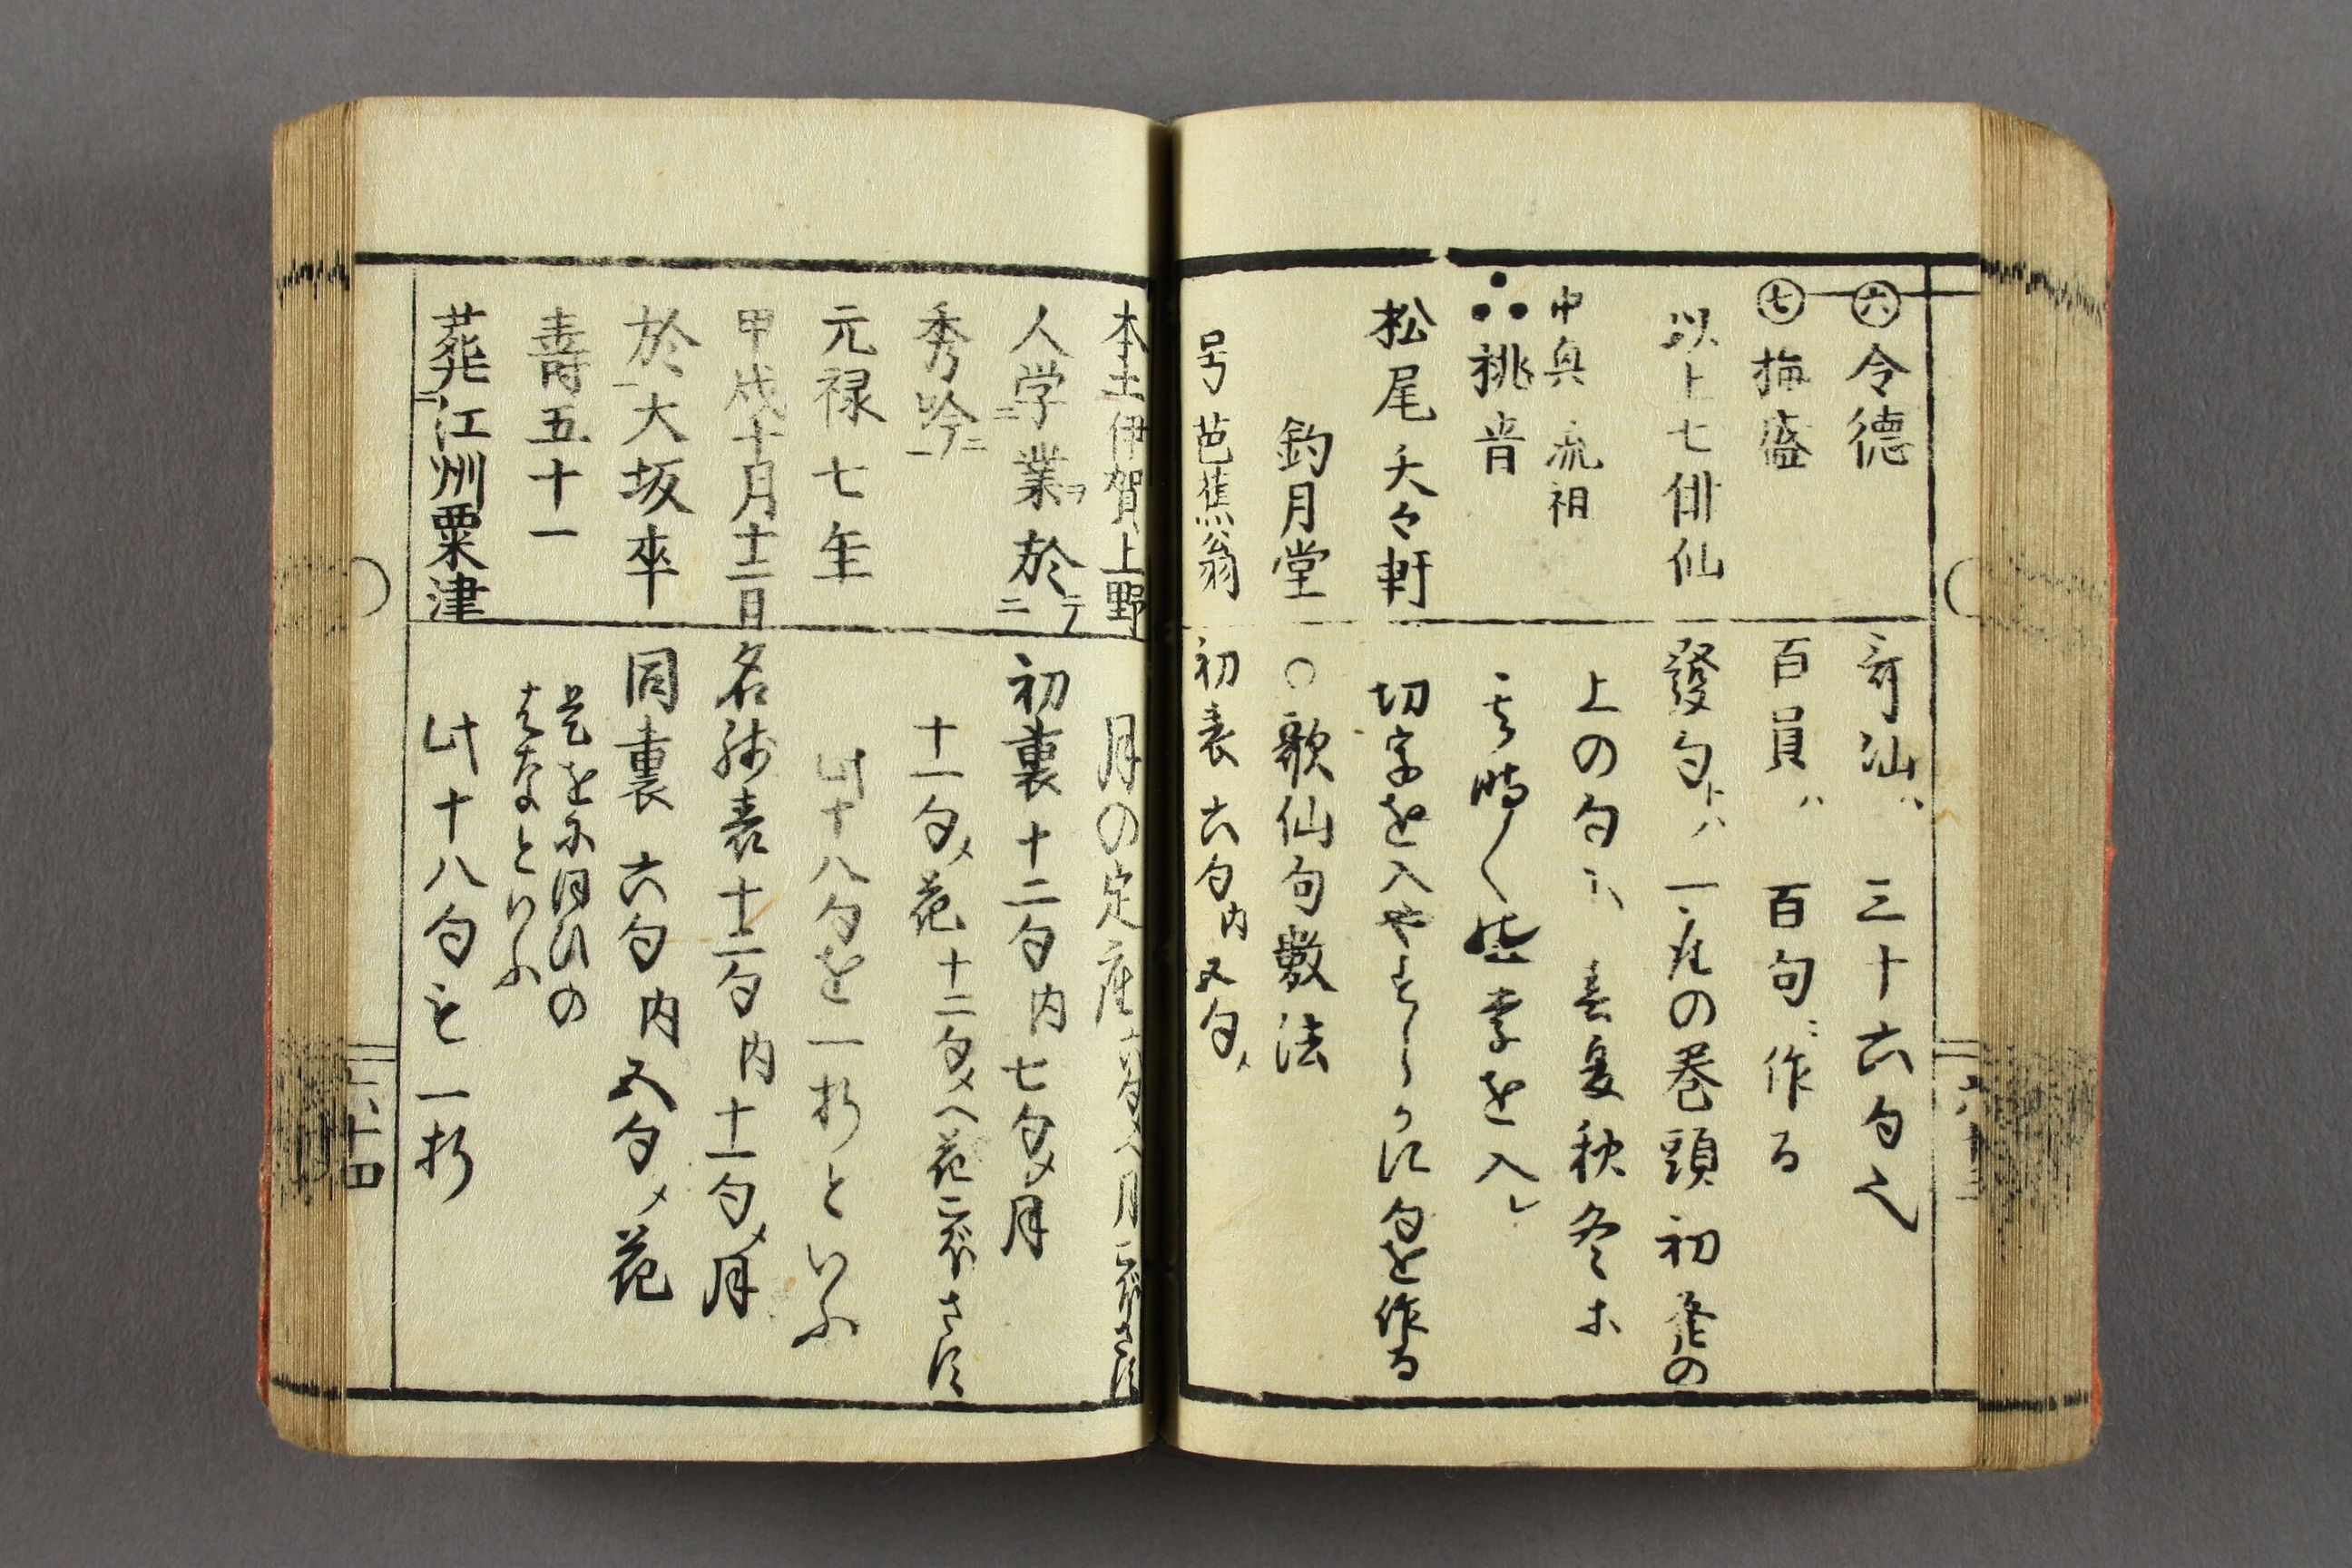 ㊅令德
㊆梅盛
以上七俳仙
中興流祖
∴桃青
松尾夭々軒
釣月堂
号芭蕉翁
哥仙ハ三十六句也
百員ハ百句ニ作る
發句トハ一座の巻頭初発の
上の句ニ而春夏秋冬ホ
其時〱の季を入レ
切字を入やすらかに句を作る
○歌仙句数法
初表六句内五句メ
六十三
本土伊賀上野
人学ニ業ヲ於テニ
秀吟ニ一
元禄七年
甲戌十月十二日
於一大坂卒
壽五十一
葬ニ江州粟津
月の定座六句メへ月こぼさす
初裏十二句内七句メ月
十一句メ花十二句メへ花こぼさす
此十八句を一折といふ
名残表十二句内十一句メ月
同裏六句内五句メ花
是をにほひの
はなといふ
此十八句を一折
六十四